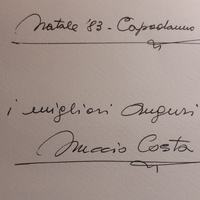 Natale '83 - Capodanno
i migliori auguri
Costa